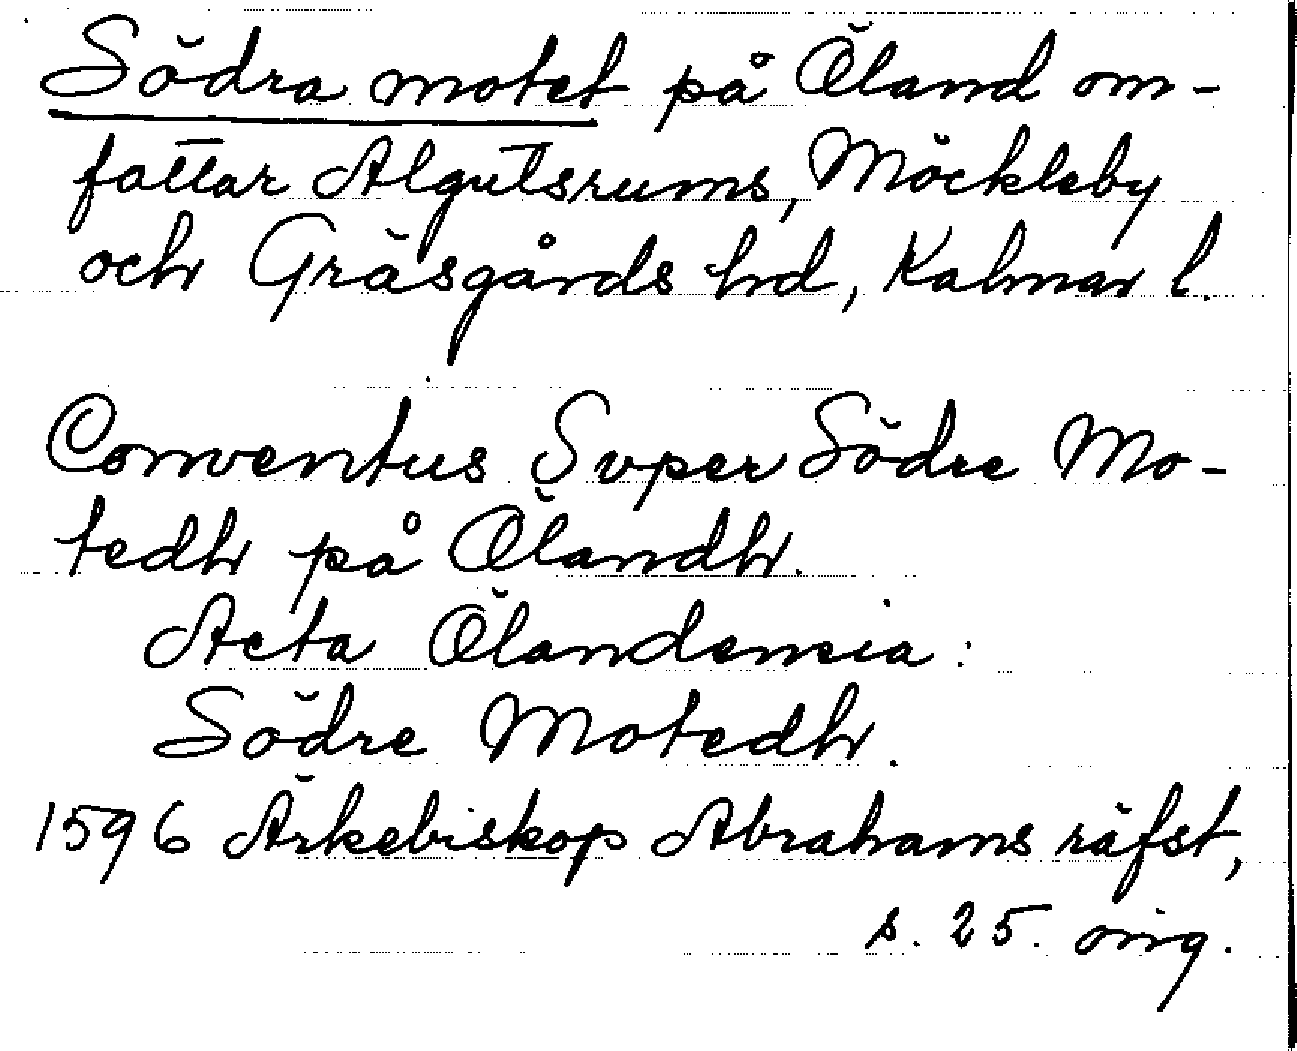 Södra motet på Öland om-
fattar Algutsrums, Möckleby
och Gräsgårds hd, Kalmar l.
Conventus Svper Södre Mo-
tedh på Ölandh.
Acta Ölandensia:
Södre Motedh.
1596 Ärkebiskop Abrahams räfst,
s. 25. oing.